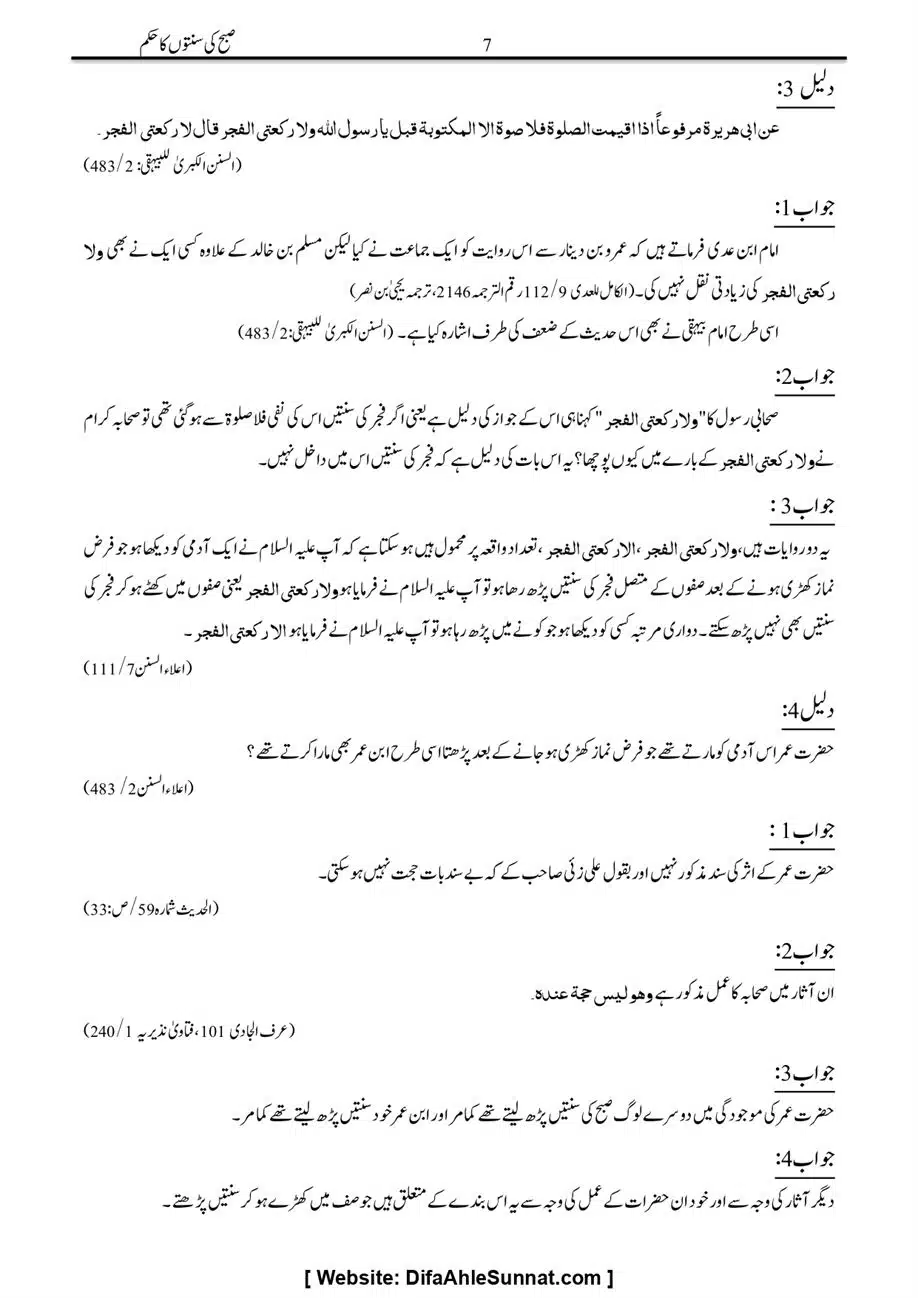 صبح کی سنتوں کا حکم
7
دلیل 3:
عن ابی هریرة مرفوعاً اذا اقیمت الصلوة فلا صوة الا المکتوبة قبل یا رسول الله ولا رکعتی الفجر قال لا رکعتی الفجر۔
(السنن الکبریٰ للبیہقی: 483/2)
جواب1:
امام ابن عدی فرماتے ہیں کہ عمرو بن دینار سے اس روایت کو ایک جماعت نے کیا لیکن مسلم بن خالد کے علاوہ کسی ایک نے بھی ولا
رکعتی الفجر کی زیادتی نقل نہیں کی۔(الکامل للعدی 112/9رقم الترجمہ2146، ترجمہ یحییٰ بن نصر)
اسی طرح امام بیہقی نے بھی اس حدیث کے ضعف کی طرف اشارہ کیا ہے۔ (السنن الکبریٰ للبیہقی:483/2)
جواب2:
صحابی رسول کا"ولا رکعتی الفجر " کہنا ہی اس کے جواز کی دلیل ہے یعنی اگر فجر کی سنتیں اس کی نفی فلا صلوة سے ہوگئی تھی تو صحابہ کرام
نے ولا رکعتی الفجر کے بارے میں کیوں پوچھا؟ یہ اس بات کی دلیل ہے کہ فجر کی سنتیں اس میں داخل نہیں۔
جواب3 :
یہ دو روایات ہیں،ولا رکعتی الفجر ،الا رکعتی الفجر ،تعداد واقعہ پر محمول ہیں ہو سکتا ہے کہ آپ علیہ السلام نے ایک آدمی کو دیکھا ہو جو فرض
نماز کھڑی ہونے کے بعد صفوں کے متصل فجر کی سنتیں پڑھ رھا ہو تو آپ علیہ السلام نے فرمایا ہو ولا رکعتی الفجر یعنی صفوں میں کھٹے ہو کر فجر کی
سنتیں بھی نہیں پڑھ سکتے۔ دواری مرتبہ کسی کو دیکھا ہو جو کونے میں پڑھ رہا ہو تو آپ علیہ السلام نے فرمایا ہو الا رکعتی الفجر ۔
(اعلاء السنن111/7)
دلیل4:
حضرت عمر اس آدمی کو مارتے تھے جو فرض نماز کھڑی ہو جانے کے بعد پڑھتا اسی طرح ابن عمر بھی مارا کرتے تھے ؟
(اعلاء السنن2/ 483)
جواب1 :
حضرت عمر کے اثر کی سند مذکور نہیں اور بقول علی زئی صاحب کے کہ بے سند بات حجت نہیں ہو سکتی۔
(الحدیث شمارہ59/ص:33)
جواب2:
ان آثار میں صحابہ کا عمل مذکور ہے وھو لیس حجة عندہ۔
(عرف الجادی 101، فتاویٰ نذیریہ 240/1)
جواب3:
حضرت عمر کی موجودگی میں دوسرے لوگ صبح کی سنتیں پڑھ لیتے تھے کمامر اور ابن عمر خود سنتیں پڑھ لیتے تھے کمامر۔
جواب4:
دیگر آثار کی وجہ سے اور خود ان حضرات کے عمل کی وجہ سے یہ اس بندے کے متعلق ہیں جو صف میں کھڑے ہو کر سنتیں پڑھتے۔
[ Website: DifaAhleSunnat.com ]